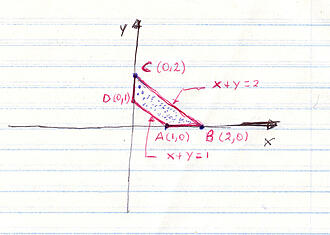 y
C (0,2)
x+y=2
D(0,1)
A(1,0) B (2,0) x
x+y=1